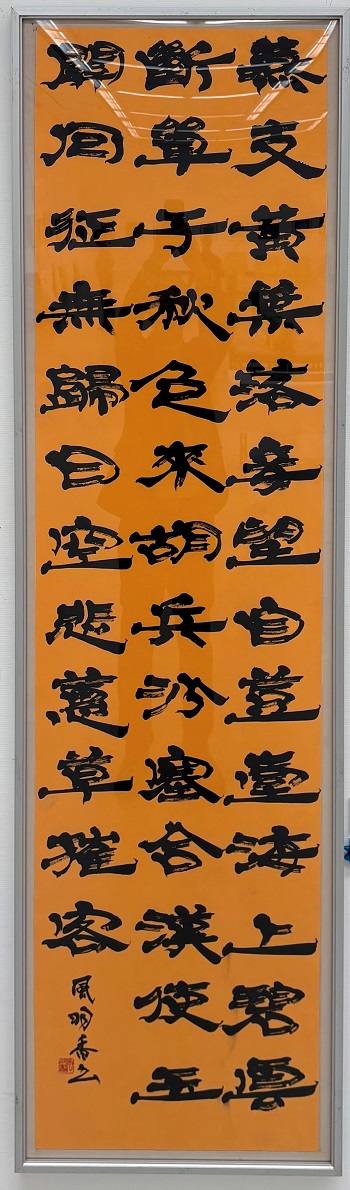 燕支黄葉落妾望自登臺海上碧雲
斷單于秋色來胡兵沙塞合漢使玉
關回征無歸日空悲蕙草摧客